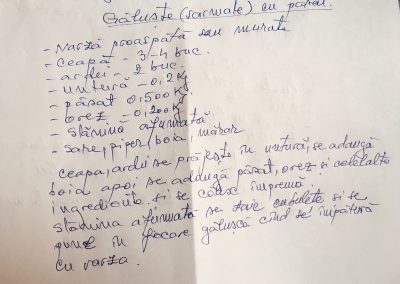 Găluște (sarmale) cu păsat.
- Varză proaspătă sau murată
- Ceapă - 3-4 buc.
- ardei - 2 buc.
- untură - 0,2 Kg
- păsat 0,500 Kg.
- orez - 0,200 Kg
- slănină afumată
- sare, piper, boia, mărar
Ceapa, ardei se prăjește în untură, se adaugă
boia apoi se addugă păsat, orez și celelalte
ingrediente și se călesc împreună.
Slănina afumată se taie cubulețe și se
pune în fiecare găluscă când se împătură
cu varza.